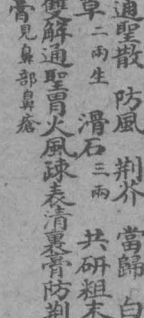 通聖散 防風 荆芥 當歸 白
草二兩半 滑石三兩 共研粗末
雙解通聖胃火風疎表清裏膏防荆
膏見鼻部鼻瘡